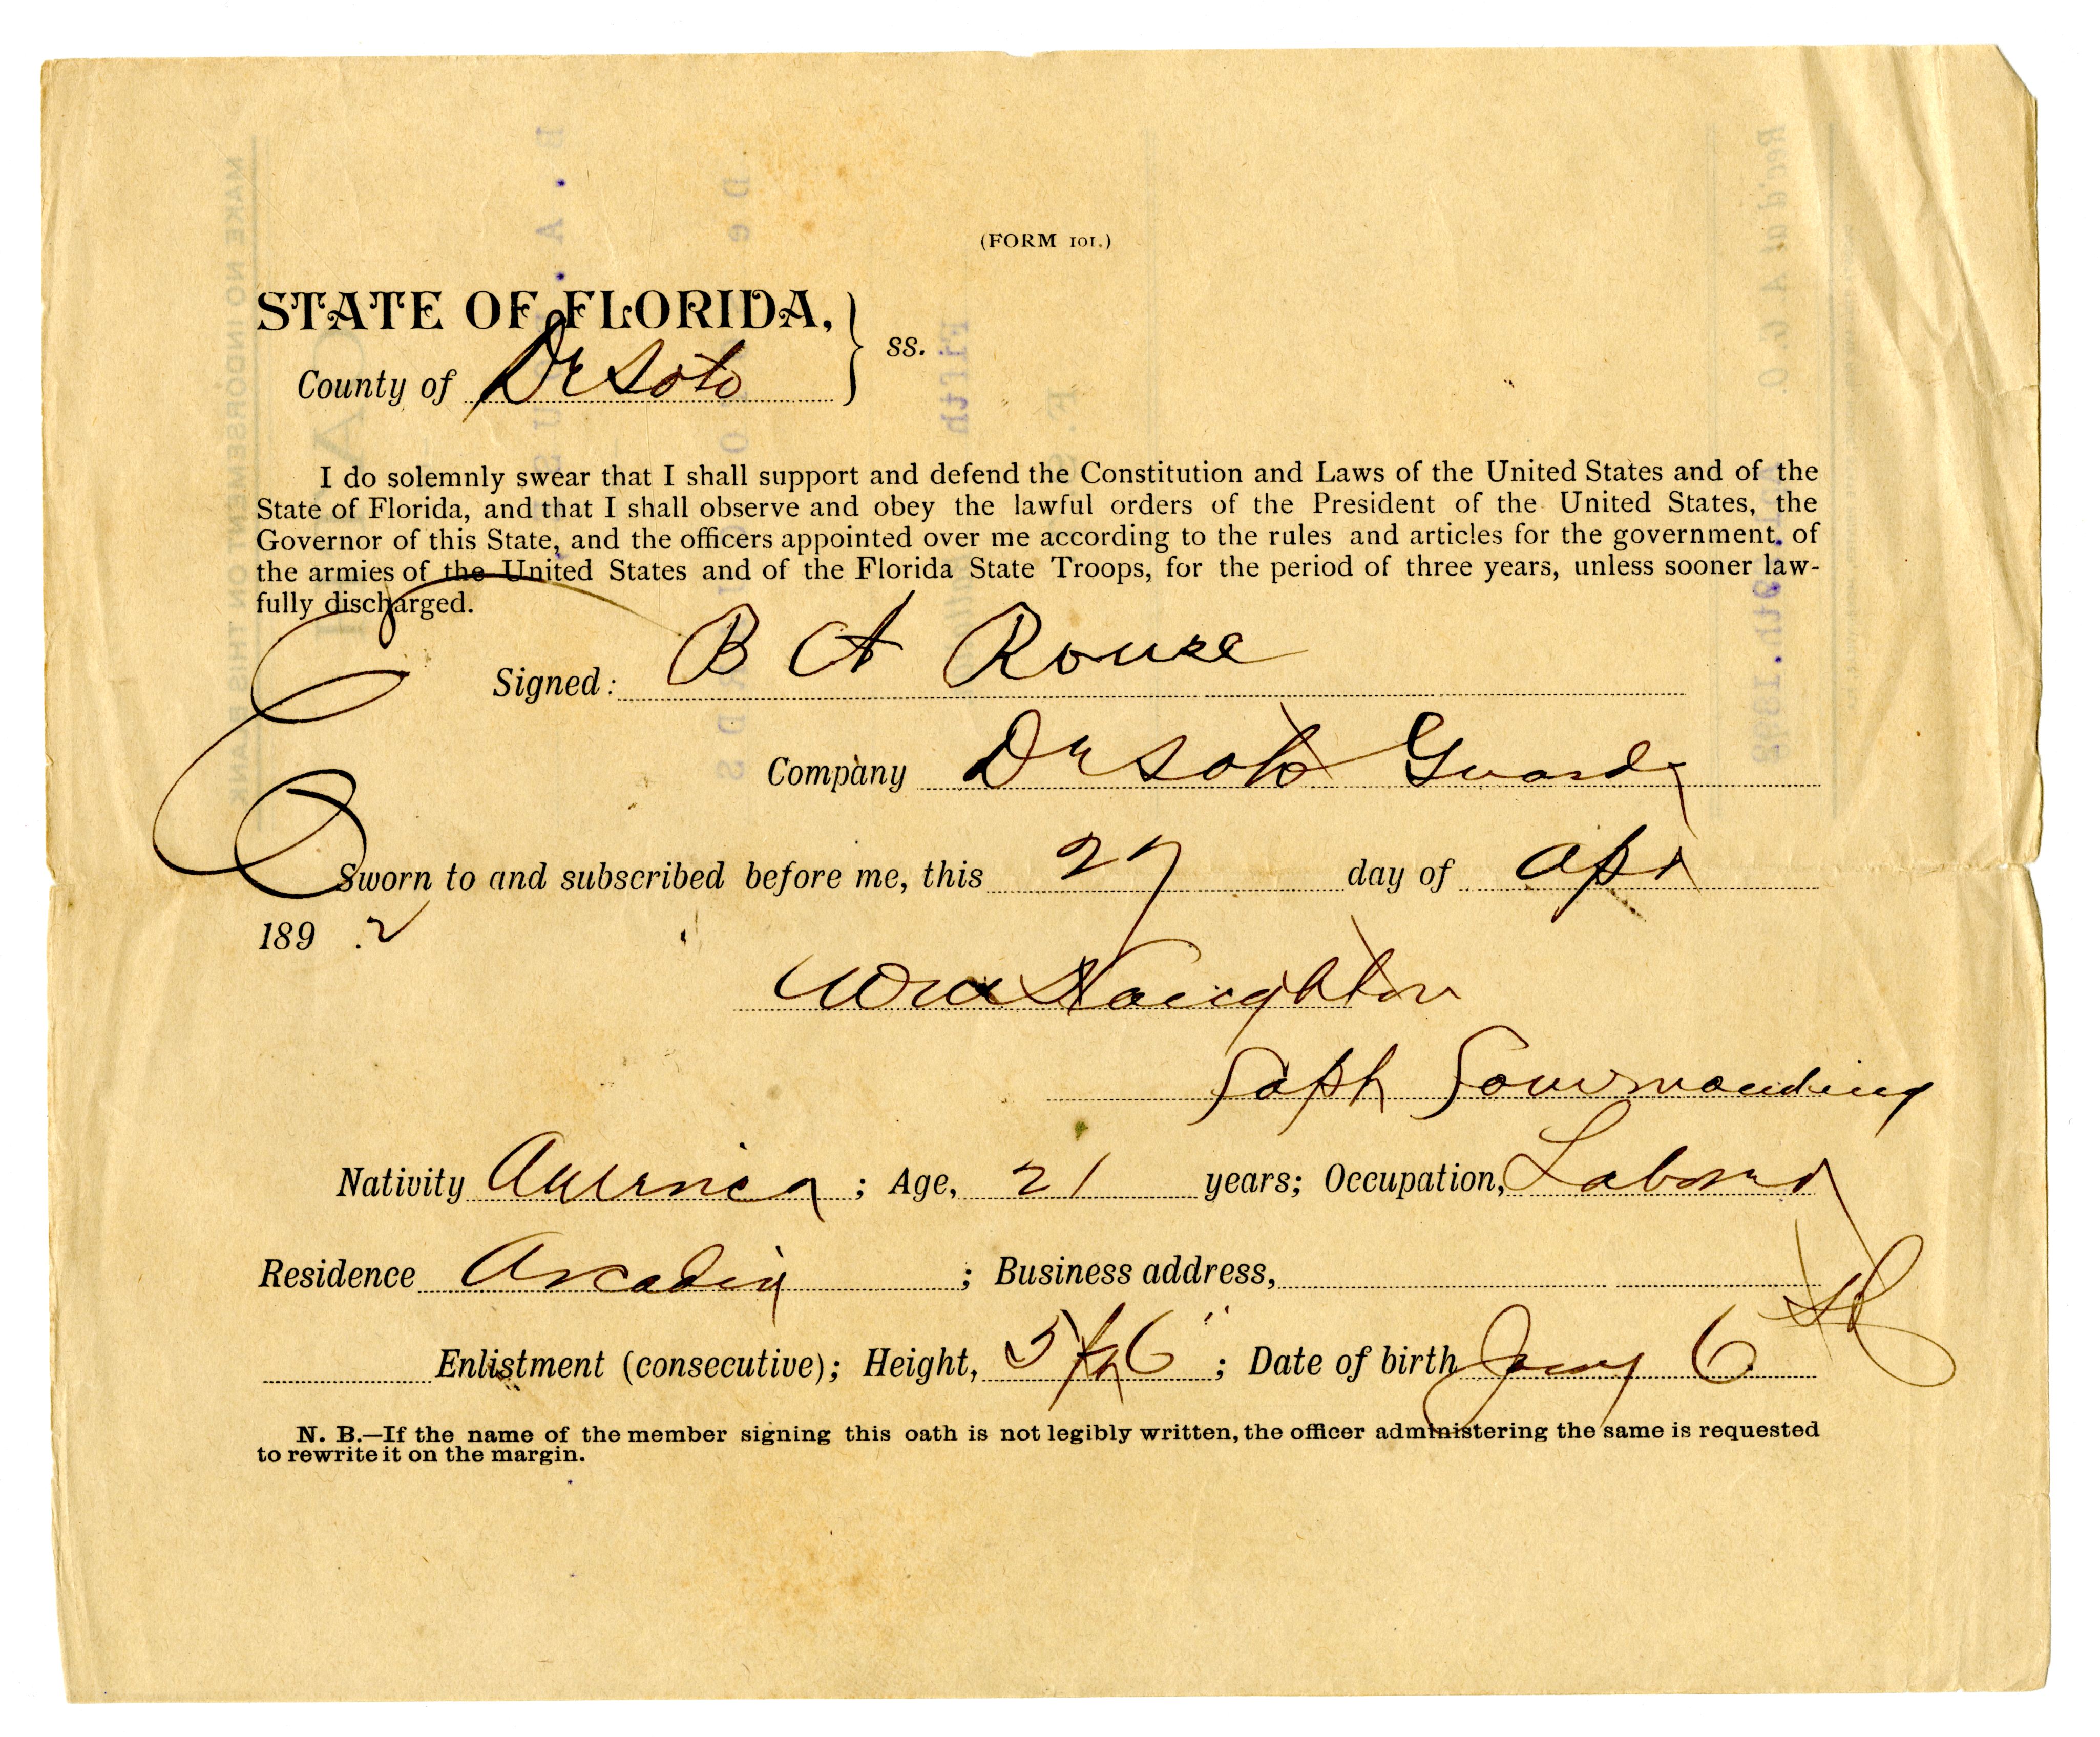 (FORM 101.)
STATE OF FLORIDA, } ss.
County of DeSoto
I do solemnly swear that I shall support and defend the Constitution and Laws of the United States and of the
State of Florida, and that I shall observe and obey the lawful orders of the President of the United States, the
Governor of this State, and the officers appointed over me according to the rules and articles for the government of
the armies of the United States and of the Florida State Troops, for the period of three years, unless sooner law-
fully discharged.
Signed: B A Rouse
Company DeSoto Guards
Sworn to and subscribed before me, this 27 day of Apr
189 2
Wm Naughton
Capt Commanding
Nativity America ; Age, 21 years; Occupation, Laborer
Residence Arcadia ; Business address,
Enlistment (consecutive); Height, 5 ft 6" ; Date of birth Jany 6
N. B.—If the name of the member signing this oath is not legibly written, the officer administering the same is requested
to rewrite it on the margin.